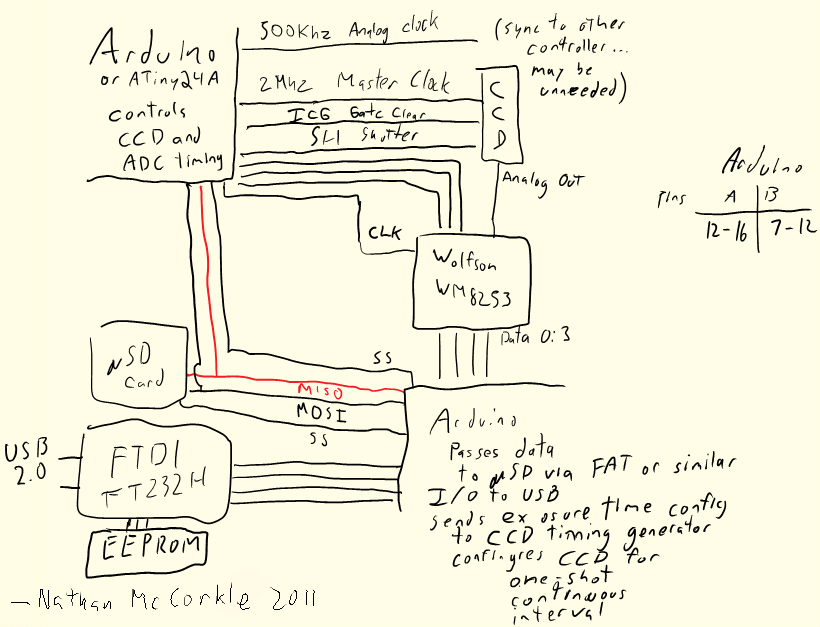 Arduino
or ATiny24A
controls
CCD and
ADC timing
500Khz Analog clock
(sync to other
controller...
may be
unneeded)
2Mhz Master Clock
ICG Gate Clear
SH Shutter
CCD
Analog Out
CLK
Wolfson
WM8253
Data 0:3
Arduino
Pins A B
12-16 7-12
µSD
Card
SS
MISO
MOSI
SS
USB
2.0
FTDI
FT232H
EEPROM
Arduino
Passes data
to µSD via FAT or similar
I/O to USB
sends exposure time config
to CCD timing generator
configures CCD for
one-shot
continuous
interval
- Nathan McCorkle 2011